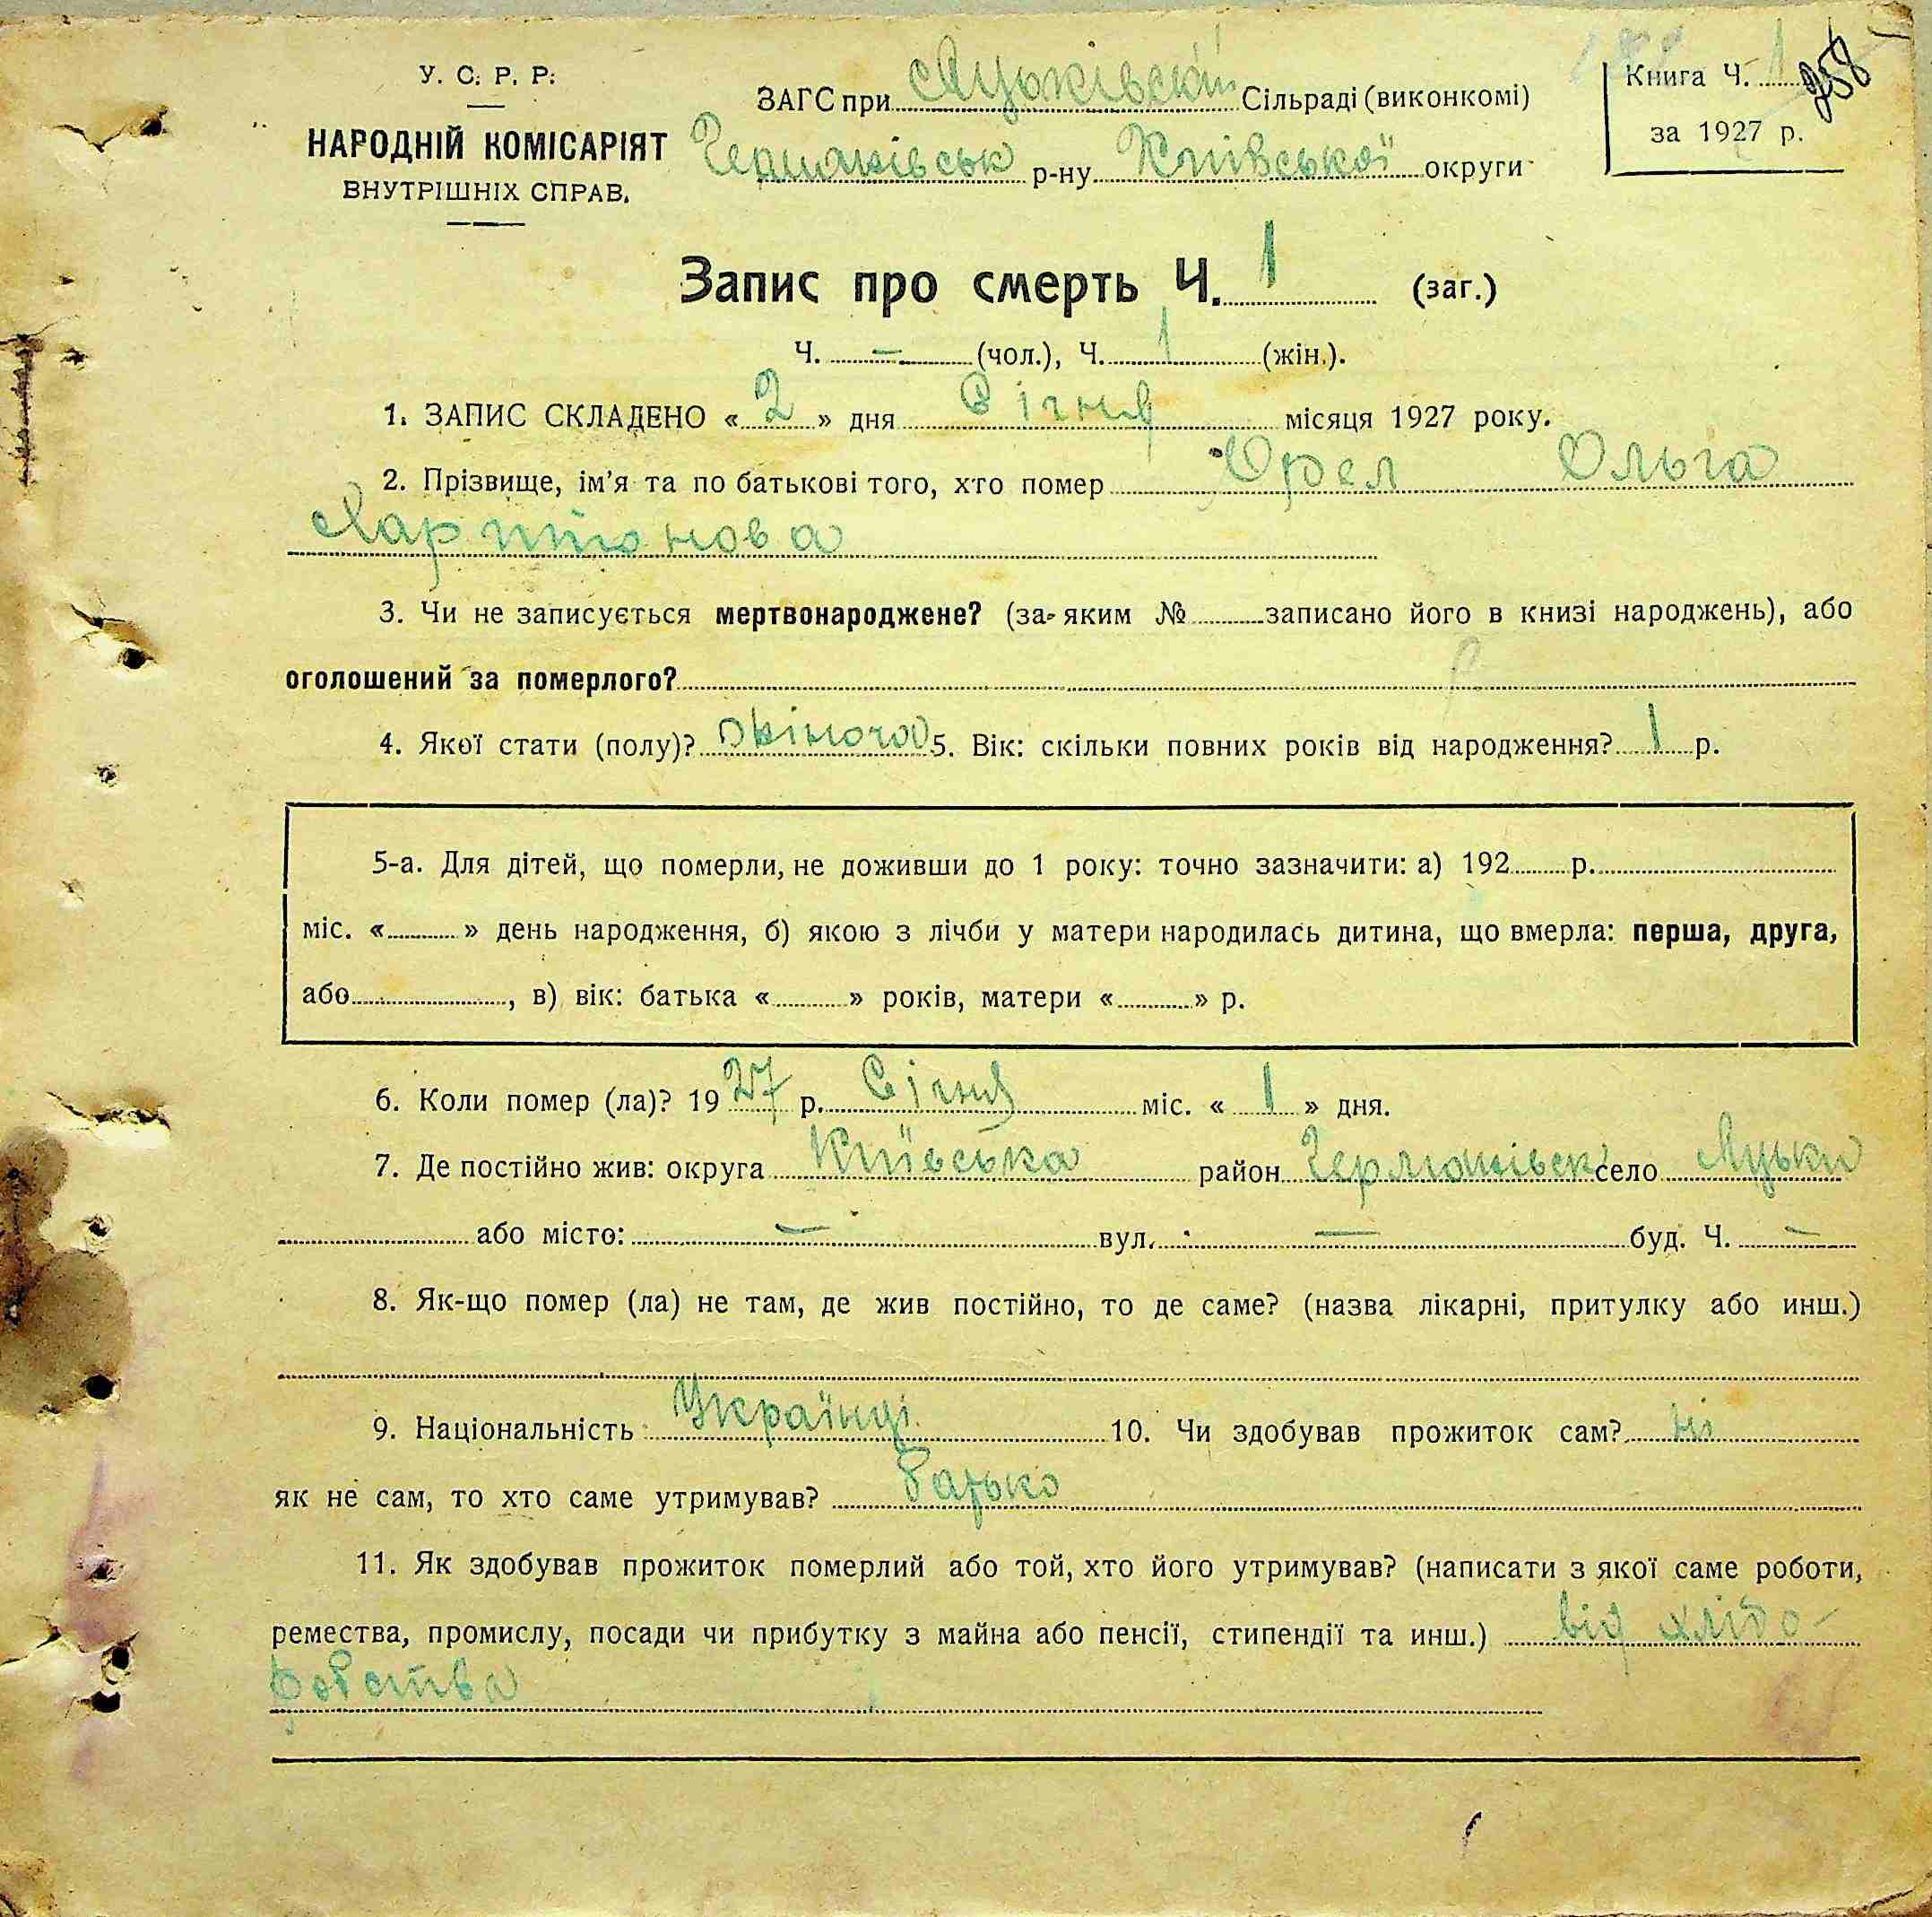 У. С. Р. Р.
НАРОДНІЙ КОМІСАРІЯТ
ВНУТРІШНІХ СПРАВ.
ЗАГС при Яцьківській Сільраді (виконкомі)
Германівськ р-ну Київської округи
Книга Ч. 1 258
за 1927 р.
Запис про смерть Ч. 1 (заг.)
Ч. — (чол.), Ч. 1 (жін.).
1. ЗАПИС СКЛАДЕНО « 2 » дня Січня місяця 1927 року.
2. Прізвище, ім'я та по батькові того, хто помер Орел Ольга
Харитонова
3. Чи не записується мертвонароджене? (за яким № записано його в книзі народжень), або
оголошений за померлого?
4. Якої стати (полу)? жіноча 5. Вік: скільки повних років від народження? 1 р.
5-а. Для дітей, що померли, не доживши до 1 року: точно зазначити: а) 192 р.
міс. « » день народження, б) якою з лічби у матери народилась дитина, що вмерла: перша, друга,
або , в) вік: батька « » років, матери « » р.
6. Коли помер (ла)? 19 27 р. Січня міс. « 1 » дня.
7. Де постійно жив: округа Київська район Германівськ село Яцьки
або місто: — вул. — буд. Ч. —
8. Як-що помер (ла) не там, де жив постійно, то де саме? (назва лікарні, притулку або инш.)
9. Національність Українці 10. Чи здобував прожиток сам? ні
як не сам, то хто саме утримував? батько
11. Як здобував прожиток померлий або той, хто його утримував? (написати з якої саме роботи,
ремества, промислу, посади чи прибутку з майна або пенсії, стипендії та инш.) від хлібо-
робства